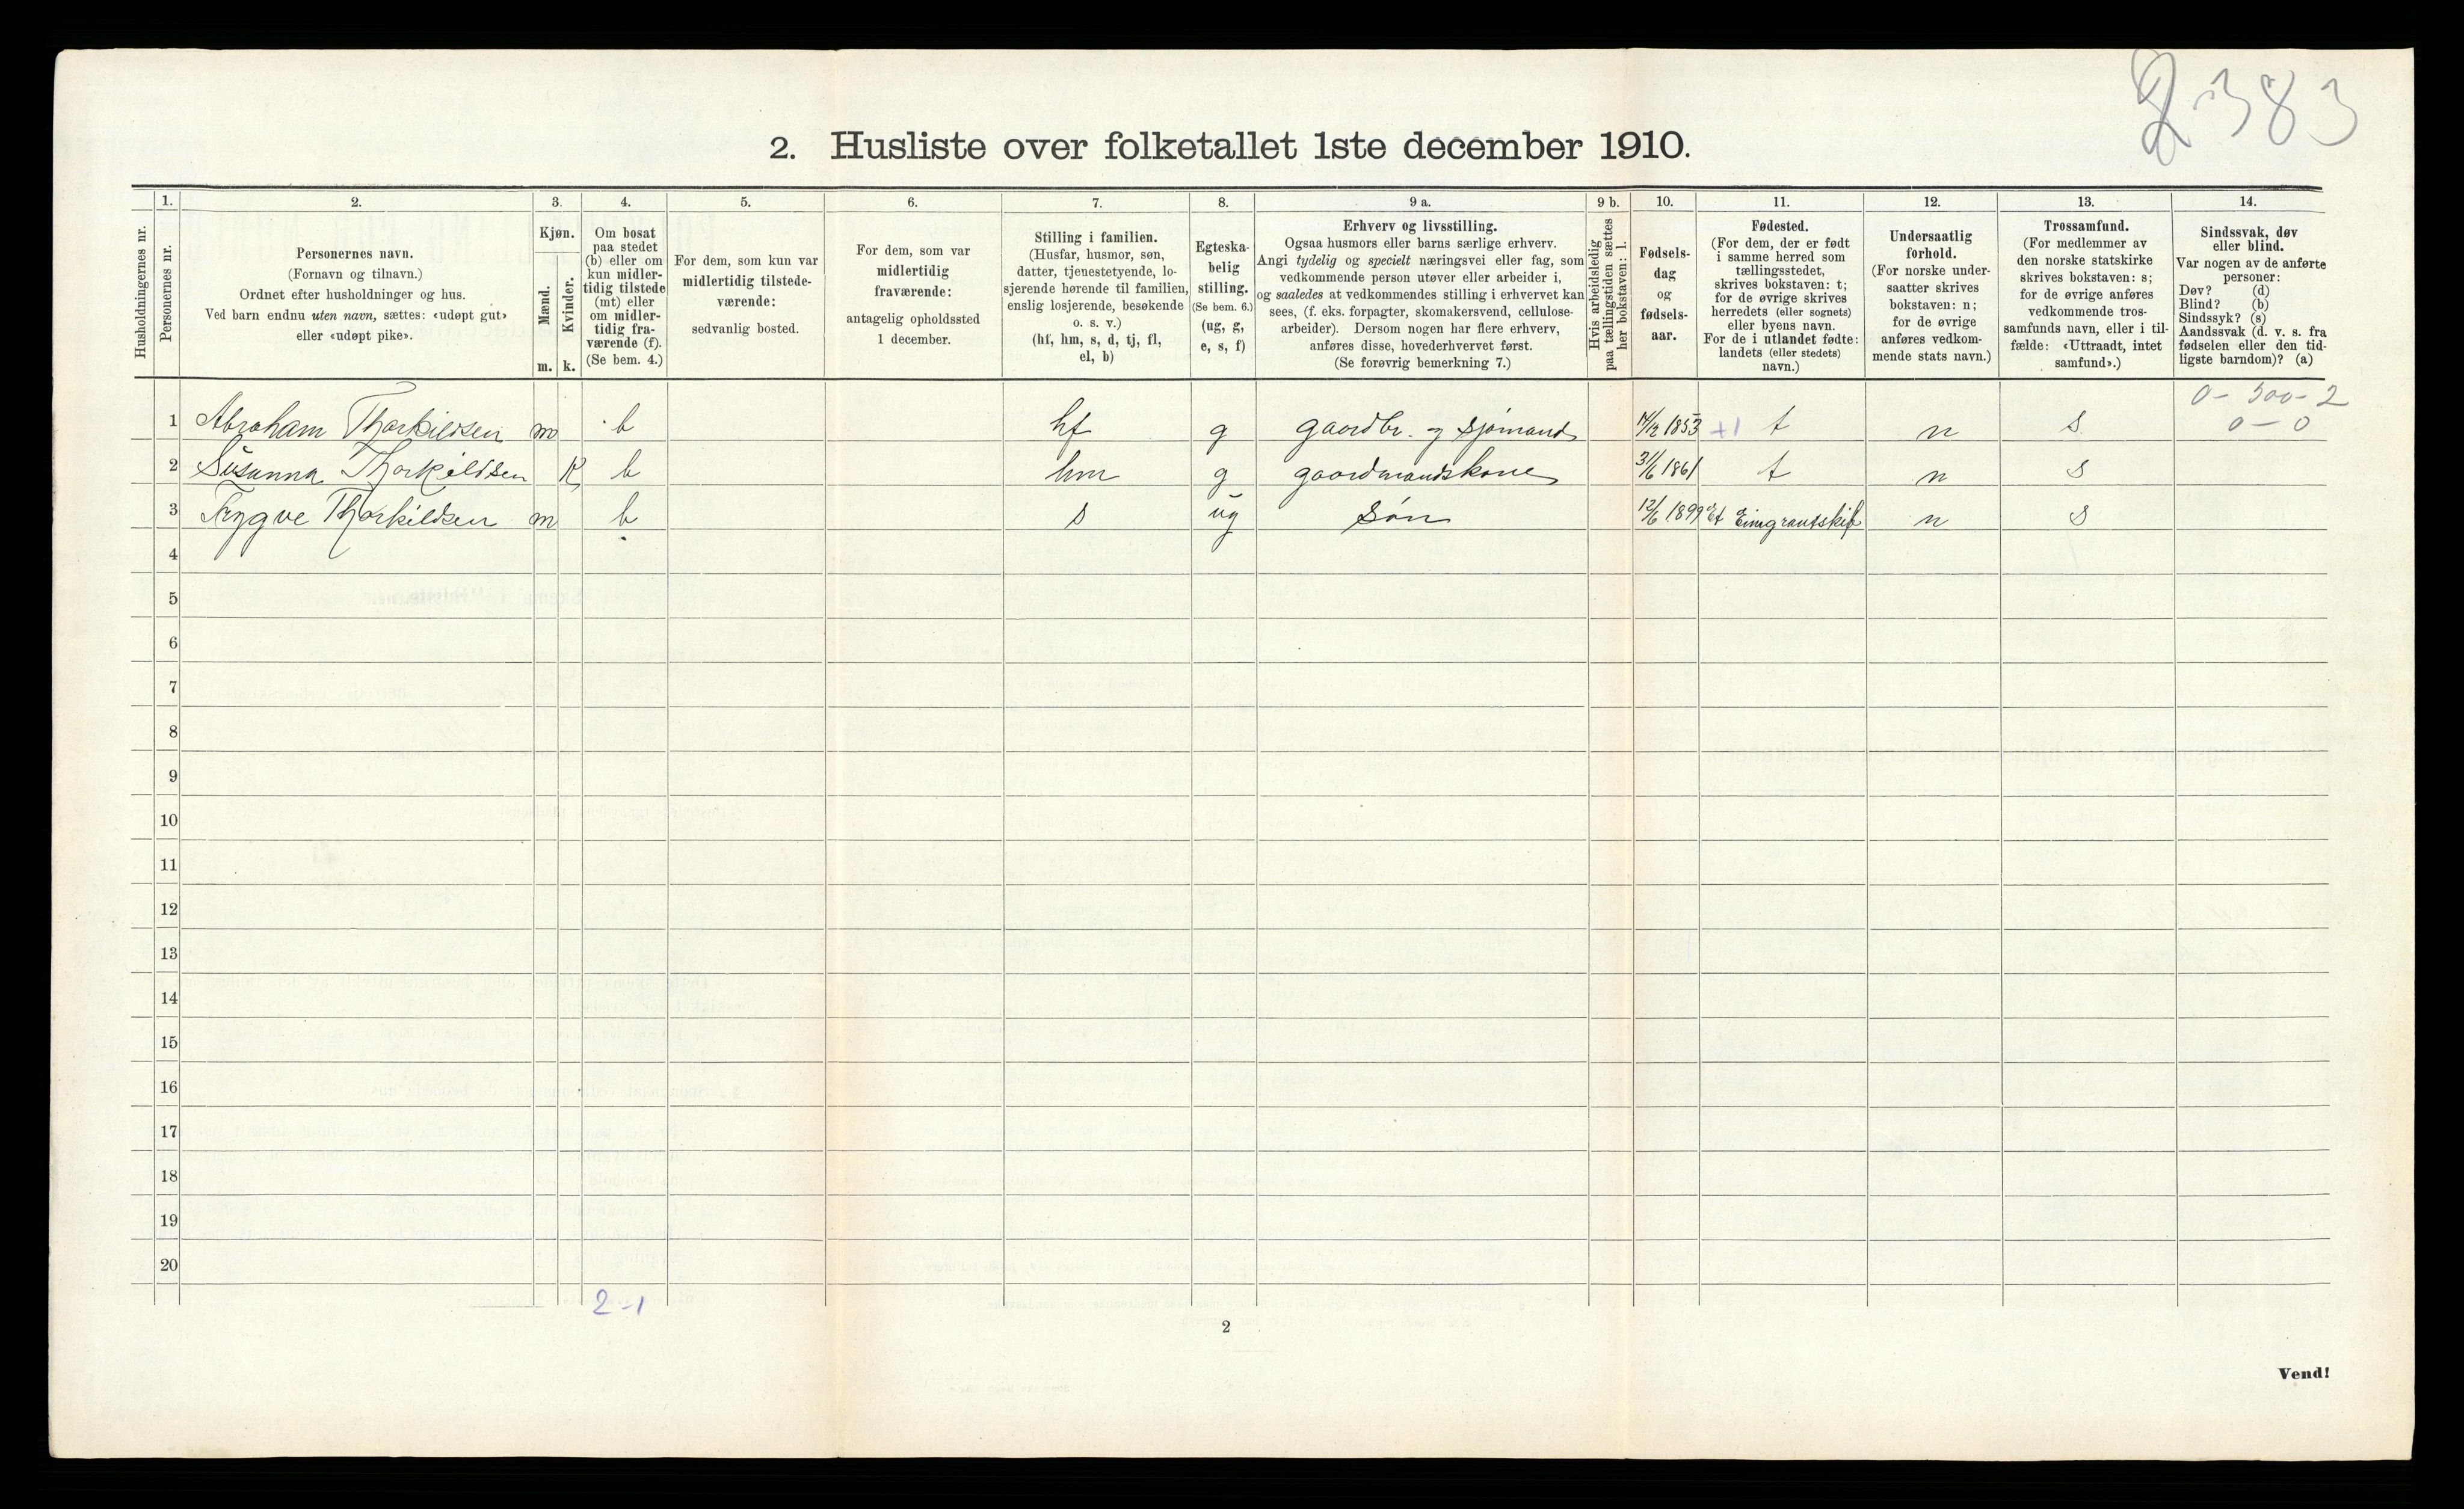 2-383
2. Husliste over folketallet 1ste december 1910.
1. 2. 3. 4. 5. 6. 7. 8. 9 a. 9 b. 10. 11. 12. 13. 14.
Husholdningernes nr.
Personernes nr.
Personernes navn.
(Fornavn og tilnavn.)
Ordnet efter husholdninger og hus.
Ved barn endnu uten navn, sættes: «udøpt gut»
eller «udøpt pike».
Kjøn.
Mænd.
Kvinder.
m. k.
Om bosat
paa stedet
(b) eller om
kun midler-
tidig tilstede
(mt) eller
om midler-
tidig fra-
værende (f).
(Se bem. 4.)
For dem, som kun var
midlertidig tilstede-
værende:
sedvanlig bosted.
For dem, som var
midlertidig
fraværende:
antagelig opholdssted
1 december.
Stilling i familien.
(Husfar, husmor, søn,
datter, tjenestetyende, lo-
sjerende hørende til familien,
enslig losjerende, besøkende
o. s. v.)
(hf, hm, s, d, tj, fl,
el, b)
Egteska-
belig
stilling.
(Se bem. 6.)
(ug, g,
e, s, f)
Erhverv og livsstilling.
Ogsaa husmors eller barns særlige erhverv.
Angi tydelig og specielt næringsvei eller fag, som
vedkommende person utøver eller arbeider i,
og saaledes at vedkommendes stilling i erhvervet kan
sees, (f. eks. forpagter, skomakersvend, cellulose-
arbeider). Dersom nogen har flere erhverv,
anføres disse, hovederhvervet først.
(Se forøvrig bemerkning 7.)
Hvis arbeidsledig
paa tællingstiden sættes
her bokstaven: l.
Fødsels-
dag
og
fødsels-
aar.
Fødested.
(For dem, der er født
i samme herred som
tællingsstedet,
skrives bokstaven: t;
for de øvrige skrives
herredets (eller sognets)
eller byens navn.
For de i utlandet fødte:
landets (eller stedets)
navn.)
Undersaatlig
forhold.
(For norske under-
saatter skrives
bokstaven: n;
for de øvrige
anføres vedkom-
mende stats navn.)
Trossamfund.
(For medlemmer av
den norske statskirke
skrives bokstaven: s;
for de øvrige anføres
vedkommende tros-
samfunds navn, eller i til-
fælde: «Uttraadt, intet
samfund».)
Sindssvak, døv
eller blind.
Var nogen av de anførte
personer:
Døv? (d)
Blind? (b)
Sindssyk? (s)
Aandssvak (d. v. s. fra
fødselen eller den tid-
ligste barndom)? (a)
0 - 300 - 2
0 - 0
1 Abraham Thorkildsen m b hf g gaardbr. og sjømand 1853 +1 t n s
2 Susanna Thorkildsen K b hm g gaardmandskone 31/6 1861 t n s
3 Trygve Thorkildsen m b s ug Søn 12/6 1899 Et Emigrantskib n s
4
5
6
7
8
9
10
11
12
13
14
15
16
17
18
19
20
2-1
2
Vend!